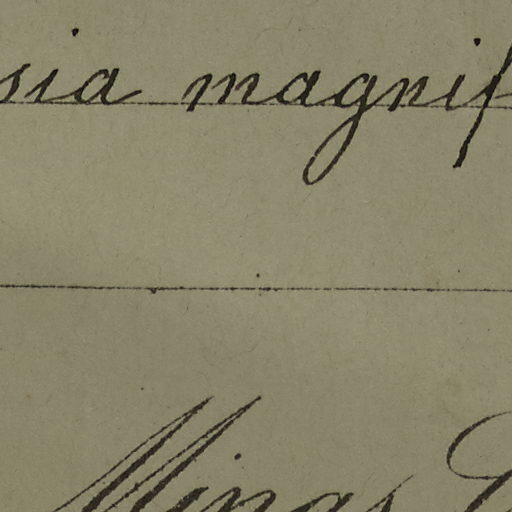 sia magnif
Minas